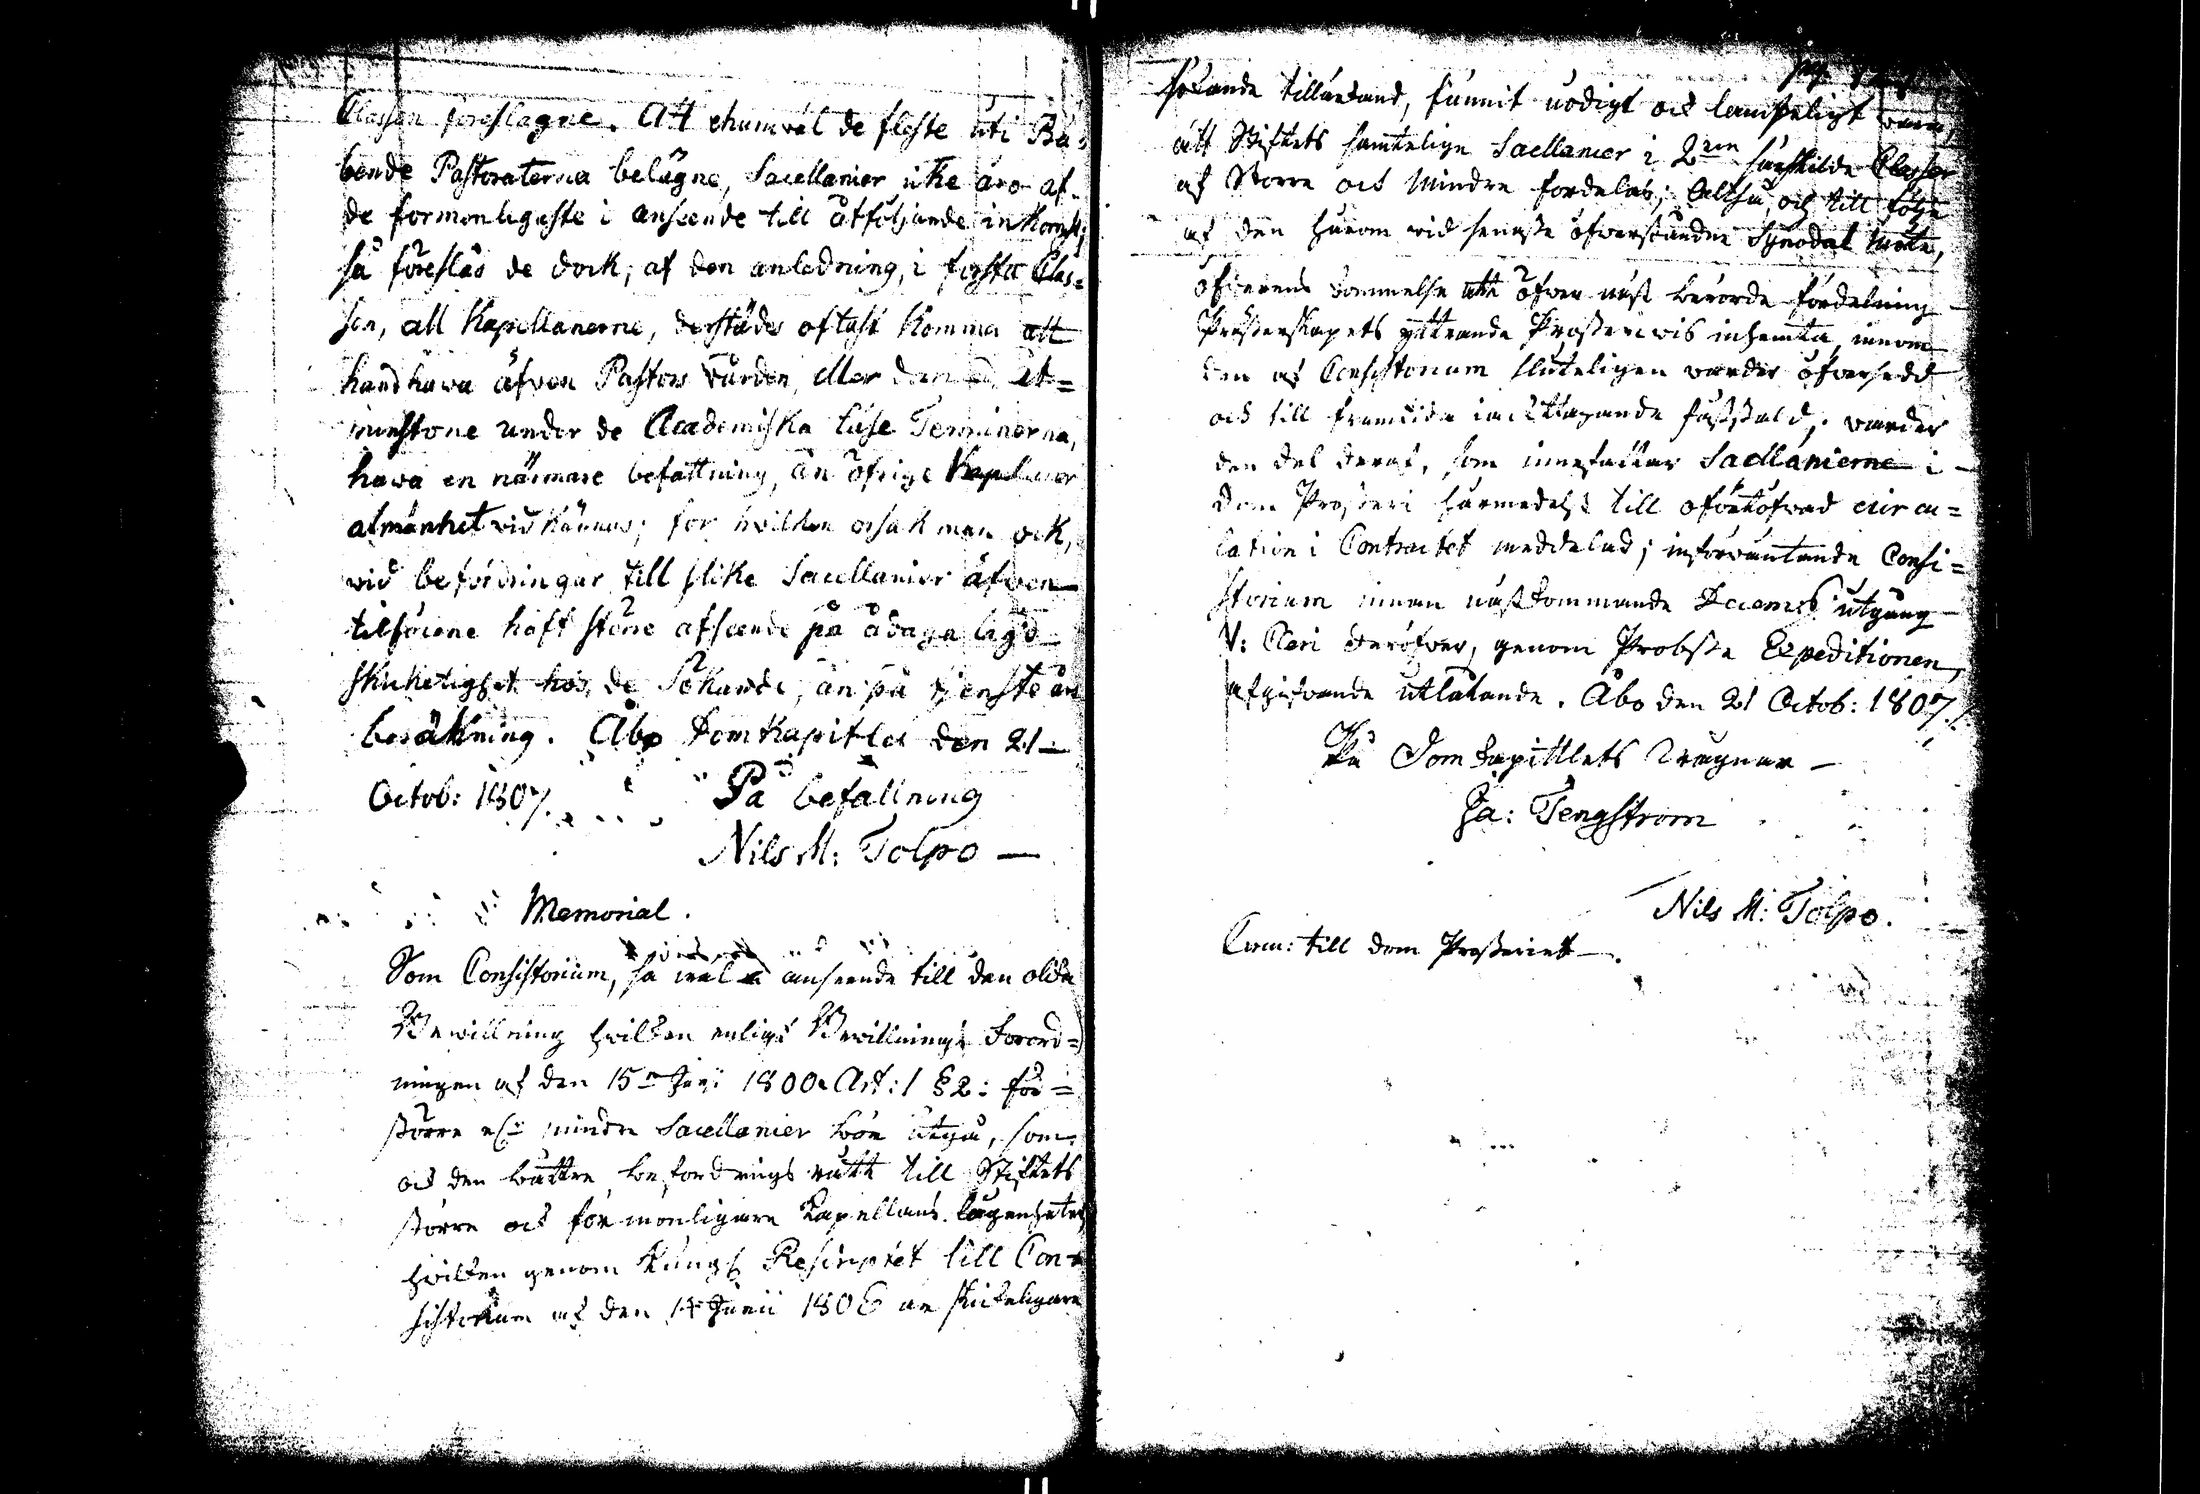 Classen föreslagne. Att ehuruväl de fleste uti Præ-
bende Pastoraterna belägne, Sacellanier icke äro af
de förmonligaste i anseende till åtföljande inkomst;
så föreslås de dock, af den anledning, i första Clas=
sen, att Kapellanerne, derstädes oftast komma att
handhawa äfwen Pastors vården, eller åt=
minstone under de Academiska Läse Terminerna,
hawa en närmare befattning, än öfrige Kapellaner
almänhet vidkännas; för hvilken orsak man ock,
wid befordringar till slike Sacellanier äfwen
tilförene haft större afseende på ådaga lagd
skickelighet hos de Sökande, än på tjenste års
beräkning. Åbo Domkapitlet den 21
Octob: 1807. På befallning
Nils M: Tolpo
Memorial.
Som Consistorium, så wäl i anseende till den olika
Bewillning hwilken enligt Bewillnings Förord=
ningen af den 15 Junii 1800 Art: 1 § 2: för
större och mindre Sacellanier bör utgå, som
ock den bättre befordrings rätt till Stiftets
större och förmonligare Kapellans lägenheter
hwilken genom Kungl Rescriptet till Con=
sistorium af den 14 Junii 1806 är skickeligare
sökande tillärkänd, funnit nödigt och lämpeligt wara,
att Stiftets samtelige Sacellanier i 2 särskilde Classer
af Större och Mindre fördelas; Altså, och till följe
af den härom wid senaste öfwerståndne Synodal Möte,
öfwerens kommelse att öfwer näst berörde fördelning
Presterskapets yttrande Prosteriwis inhemta, innom
den af Consistorium sluteligen warder öfwersedd
och till framtida iacttagande fastställd; warder
den del deraf, som innefattar Sacellanierne i
Dom Prosteri härmedelst till ofördröfwad circu=
lation i Contractet meddelad; införwäntande Consi=
storium innan nästkommande Decemb. utgång
V: Cleri deröfwer, genom Probste Expeditionen,
afgifwande utlåtande. Åbo den 21 Octob: 1807.
På Domkapitlets wägnar
Ja: Tengström
Nils M: Tolpo.
Circu: till dom Prosteriet.